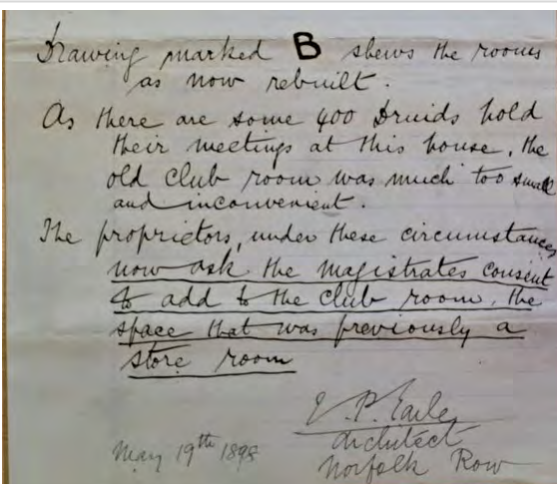 Drawing marked B shews the rooms
as now rebuilt.
As there are some 400 Druids hold
their meetings at this house, the
old club room was much too small
and inconvenient.
The proprietors, under these circumstances
now ask the magistrates consent
to add to the club room, the
space that was previously a
store room
E. P. Earle
Architect
May 19th 1898
Norfolk Row